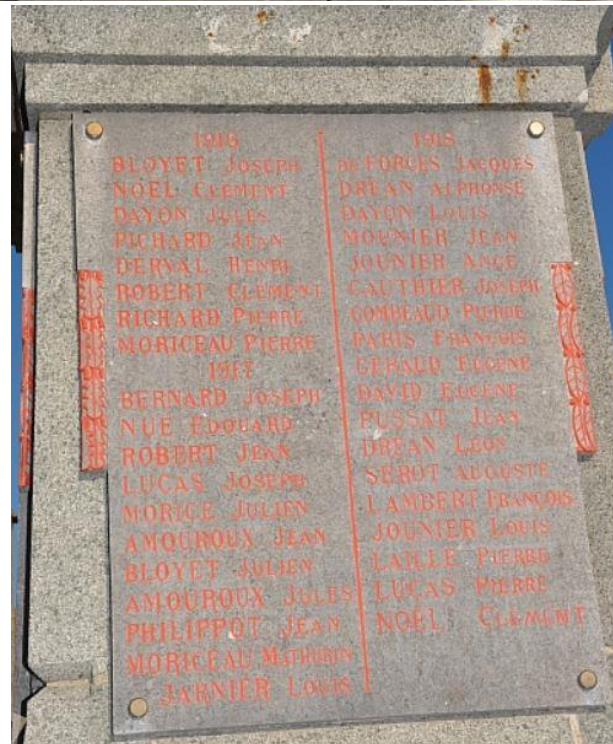 1916
BLOYET JOSEPH
NOËL CLÉMENT
DAYON JULES
PICHARD JEAN
DERVAL HENRI
ROBERT CLÉMENT
RICHARD PIERRE
MORICEAU PIERRE
1917
BERNARD JOSEPH
NUE EDOUARD
ROBERT JEAN
LUCAS JOSEPH
MORICE JULIEN
AMOUROUX JEAN
BLOYET JULIEN
AMOUROUX JULES
PHILIPPOT JEAN
MORICEAU MATHURIN
JARNIER LOUIS
1918
DE FORGES JACQUES
DREAN ALPHONSE
DAYON LOUIS
MOUNIER JEAN
JOUNIER ANGE
GAUTHIER JOSEPH
GOMBEAUD PIERRE
PARIS FRANÇOIS
GERAUD EUGÈNE
DAVID EUGÈNE
PUSSAT JEAN
DREAN LEON
SEROT AUGUSTE
LAMBERT FRANÇOIS
JOUNIER LOUIS
LAILLE PIERRE
LUCAS PIERRE
NOËL CLÉMENT